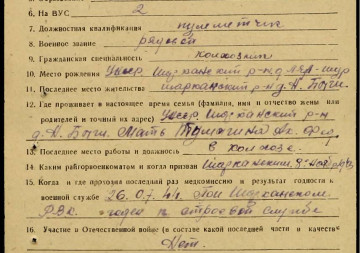 6. На ВУС 2
7. Должностная квалификация пулеметчик
8. Военное звание рядовой
9. Гражданская специальность колхозник
10. Место рождения Шарканский р-н д.
11. Последнее место жительства Шарканский р-н д. Н. Бочи.
12. Где проживает в настоящее время семья (фамилия, имя и отчество жены или
родителей и точный их адрес) Шарканский р-н
д. Н. Бочи. Мать
13. Последнее место работы и должность в колхозе.
14. Каким райгорвоенкоматом и когда призван Шарканским
15. Когда и где проходил последнюю медкомиссию и результат годности к
военной службе 26.0.7.44. При Шарканском
РВК. годен к строевой службе
16. Участие в Отечественной войне (в составе какой последней части и качеств
Нет.